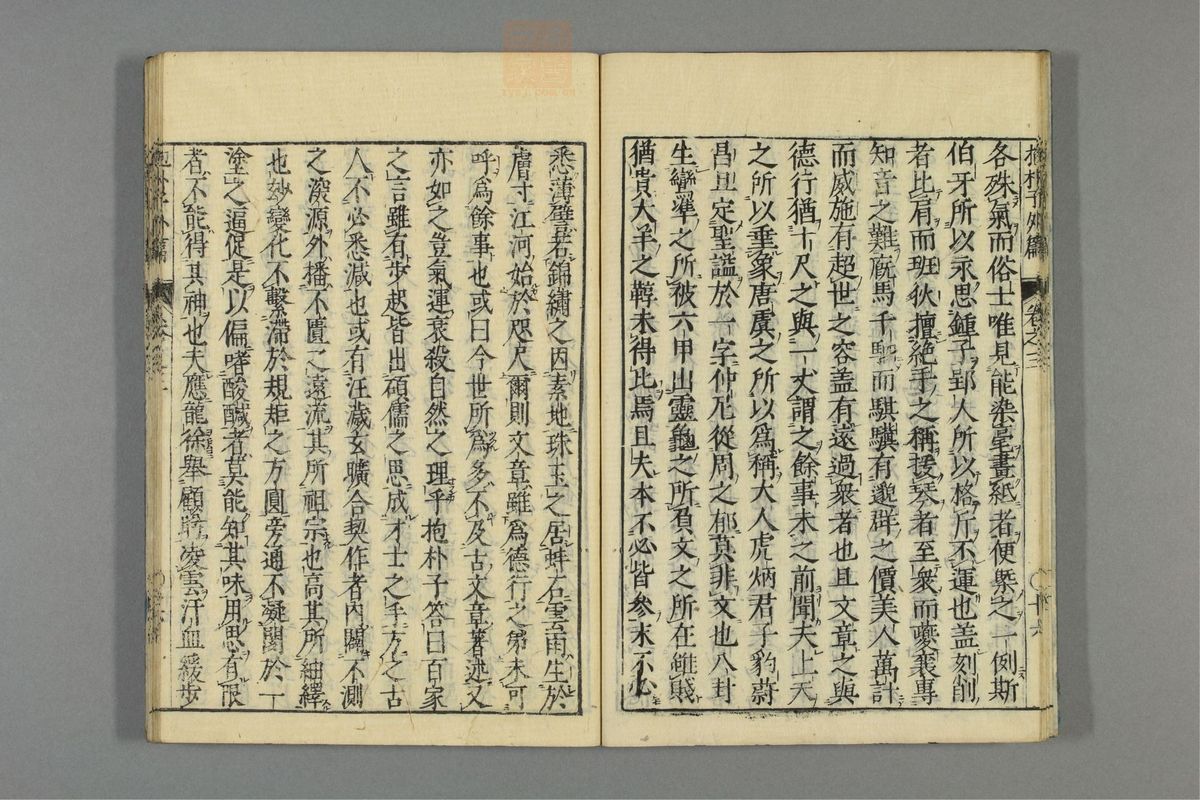 抱朴子外篇 卷之三 ○十六
各殊氣而俗士唯見能染毫畫紙者便槩之一例斯
伯牙所以永思鍾子郢人所以格斤不運也盖刻削
者比肩而班狄擅絶手之稱援琴者至衆而夔襄專
知音之難廐馬千駟而騏驥有邈群之價美人萬計
而威施有超世之容盖有遠過衆者也且文章之與
德行猶十尺之與一丈謂之餘事未之前聞夫上天
之所以垂象唐虞之所以爲稱大人虎炳君子豹蔚
昌旦定聖謚於一字仲尼從周之郁莫非文也八卦
生鷹隼之所被六甲出靈龜之所負文之所在雖賤
猶貴犬羊之鞟未得比焉且夫本不必皆參末不必
悉薄璧若錦繡之因素地珠玉之居蚌石雲雨生於
膚寸江河始於咫尺爾則文章雖爲德行之弟未可
呼爲餘事也或曰今世所爲多不及古文章著述又
亦如之豈氣運衰殺自然之理乎抱朴子答曰百家
之言雖有步起皆出碩儒之思成才士之手方之古
人不必悉減也或有汪濊玄曠合契作者內闢不測
之深源外播不匱之遠流其所祖宗也高其所紬繹
也妙變化不繫滯於規矩之方圓旁通不凝閡於一
塗之逼促是以偏嗜酸醎者莫能知其味用思有限
者不能得其神也夫應龍徐舉顧眄凌雲汗血緩步